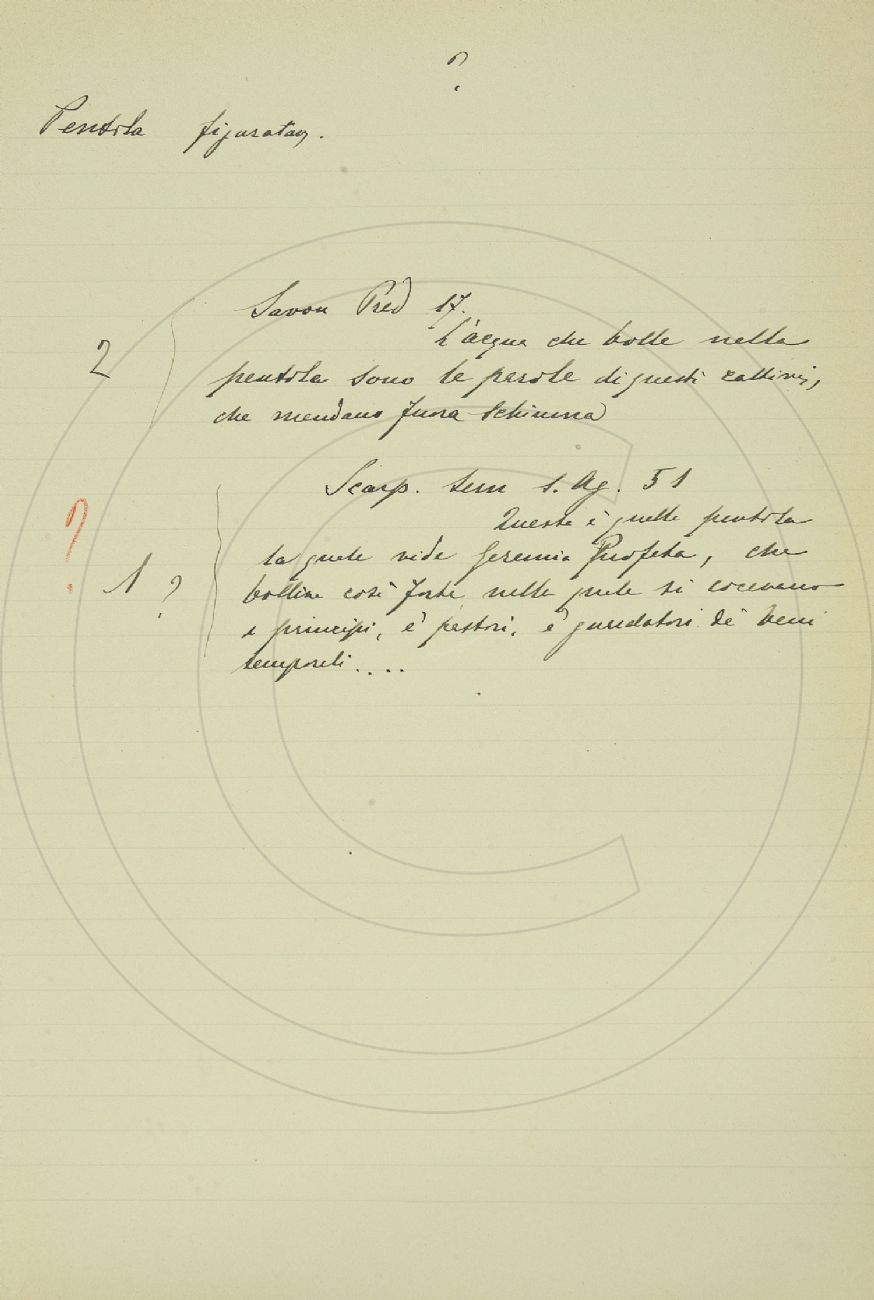 ?
Pentola figuratam.
Savon Pred 17.
L'acqua che bolle nella
2
pentola sono le parole di questi cattivi,
che mandano fuora schiuma
Scarp. Serm S. Ag. 51
Questa è quella pentola
?
la quale vide Geremia Profeta, che
1 ?
bolliva così forte nella quale si cocevano
e principi, e' pastori, e' guidatori de' beni
temporali....